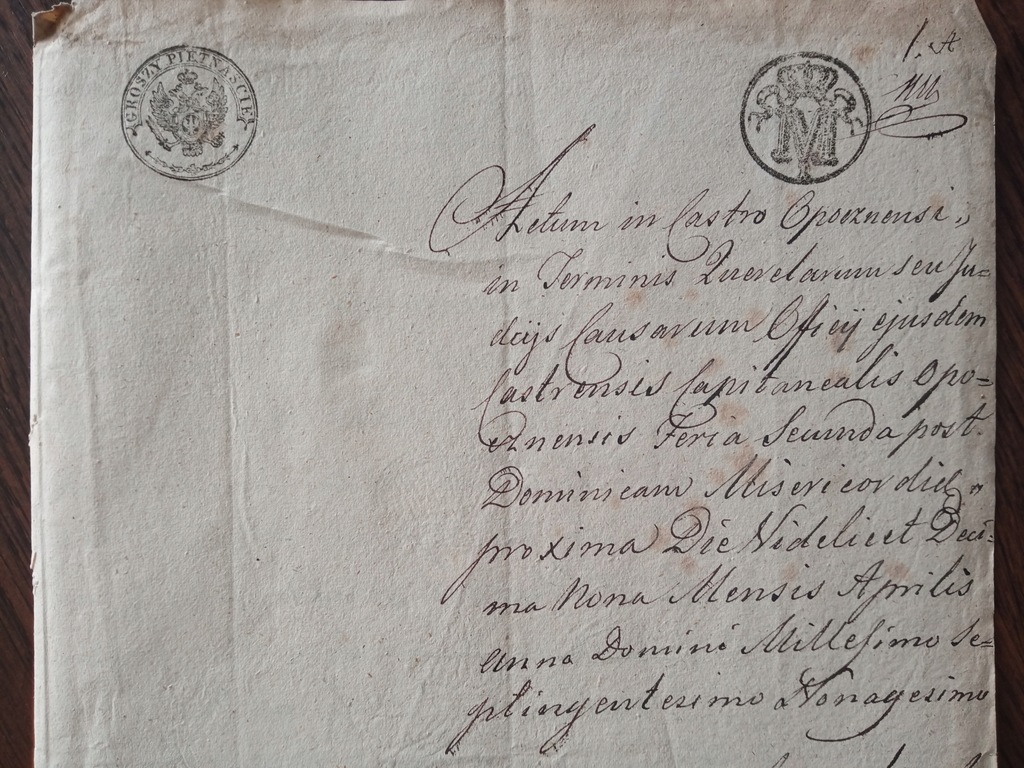 GROSZY PIĘTNAŚCIE
M
1.
Actum in Castro Opocznensi,,
in Terminis Querelarum seu Ju=
dicijs Causarum Officij ejusdem
Castrensis Capitanealis Opo=
cznensis Feria Secunda post
Dominicam Misericordie
proxima Die Videlicet Deci=
ma Nona Mensis Aprilis
Anno Domini Millesimo Se=
ptingentesimo Nonagesimo